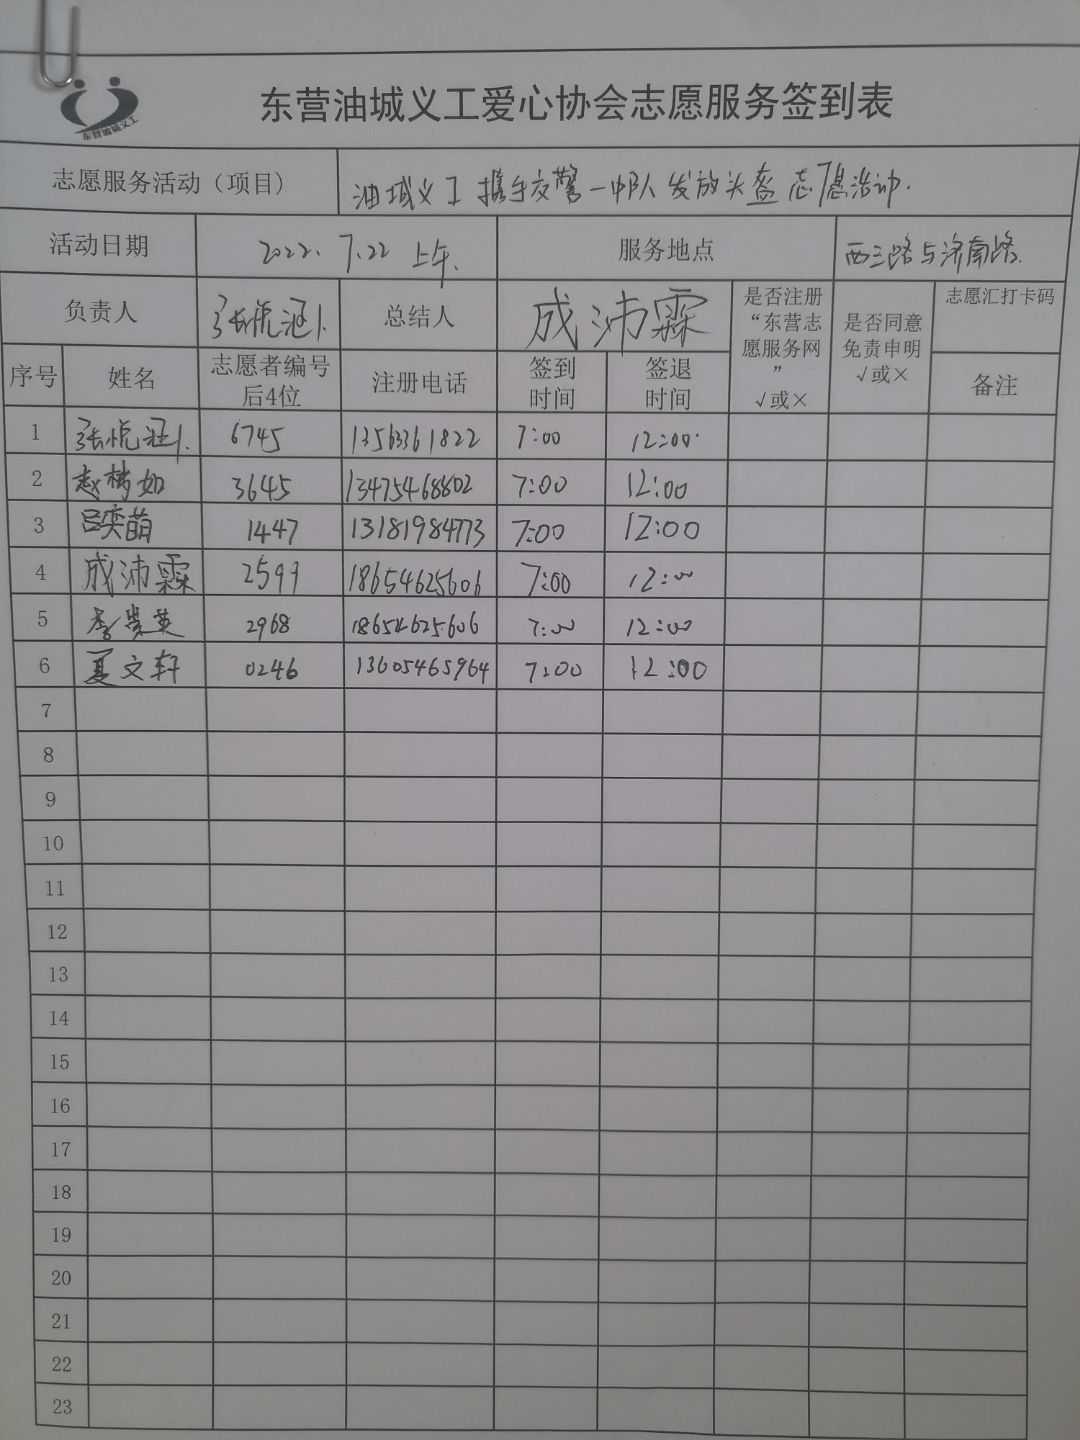 东营油城义工
东营油城义工爱心协会志愿服务签到表
志愿服务活动（项目） 油城义工携手交警一中队发放头盔志愿活动.
活动日期 2022. 7.22 上午. 服务地点 西三路与济南路.
负责人 张悦涵 总结人 成沛霖 是否注册“东营志愿服务网”√或× 是否同意免责申明√或× 志愿汇打卡码
序号 姓名 志愿者编号后4位 注册电话 签到时间 签退时间 备注
1 张悦涵 6745 13563361822 7:00 12:00
2 赵梦如 3645 13475468802 7:00 12:00
3 吕奕萌 1447 13181984773 7:00 12:00
4 成沛霖 2599 18654625606 7:00 12:00
5 李贵英 2968 18654625606 7:00 12:00
6 夏文轩 0246 13605465964 7:00 12:00
7
8
9
10
11
12
13
14
15
16
17
18
19
20
21
22
23